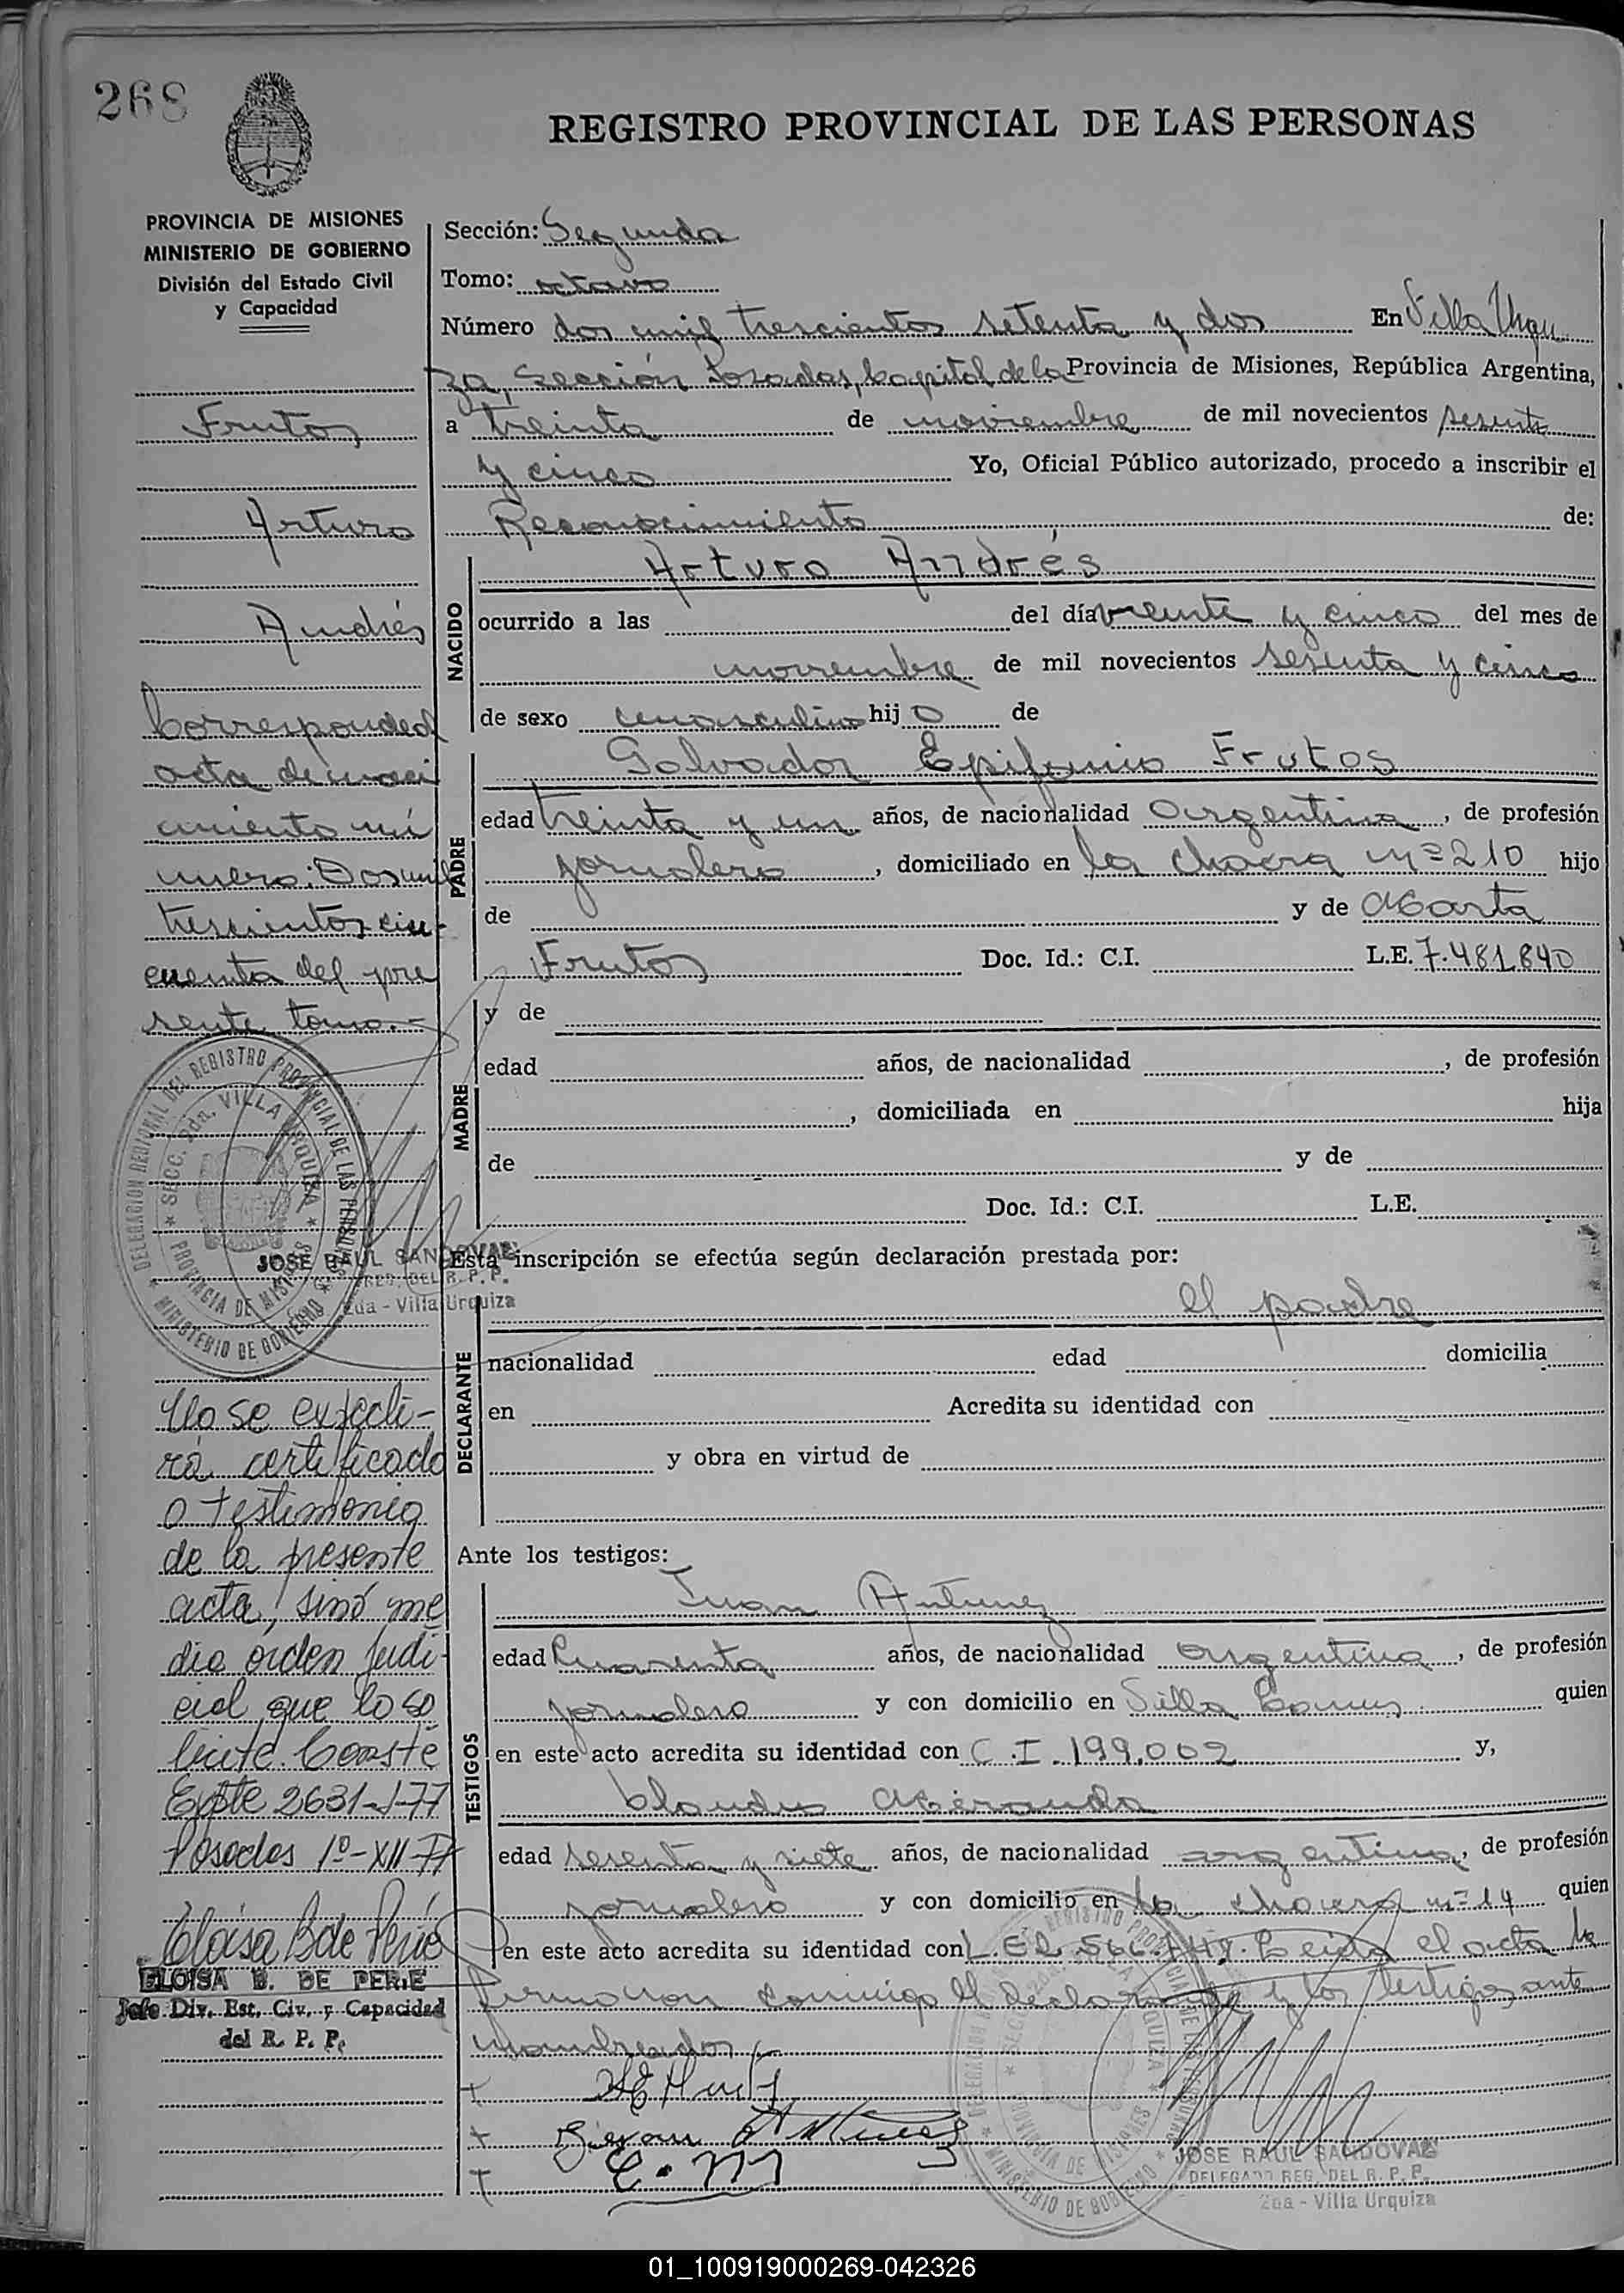 268
REGISTRO PROVINCIAL DE LAS PERSONAS
PROVINCIA DE MISIONES
MINISTERIO DE GOBIERNO
División del Estado Civil
y Capacidad
Frutos
Arturo
Andrés
Corresponde al
acta de naci
miento nú
mero: Dos mil
trescientos cin-
cuenta del pre
sente tomo.-
DELEGACION REGIONAL DEL REGISTRO PROVINCIAL DE LAS PERSONAS
* SECC. 2da. VILLA URQUIZA *
PROVINCIA DE MISIONES
* MINISTERIO DE GOBIERNO *
JOSE RAUL SANDOVAL
REG. DEL R. P. P.
2da - Villa Urquiza
No se expedi-
rá certificado
o testimonio
de la presente
acta, sinó me
dia orden judi-
cial que lo so
licite. Conste
Expte 2631-J-77
Posadas 1º-XII-77
Eloisa B de Perié
ELOISA B. DE PERIE
Jefe Div. Est. Civ. y Capacidad
del R. P. P.
Sección: Segunda
Tomo: octavo
Número dos mil trescientos setenta y dos En Villa Urqui
za, Sección Posadas, Capital de la Provincia de Misiones, República Argentina,
a treinta de noviembre de mil novecientos sesenta
y cinco Yo, Oficial Público autorizado, procedo a inscribir el
Reconocimiento de:
NACIDO
Arturo Andrés
ocurrido a las del día veinte y cinco del mes de
noviembre de mil novecientos sesenta y cinco
de sexo masculino hijo de
PADRE
Salvador Epifanio Frutos
edad treinta y un años, de nacionalidad argentina, de profesión
jornalero, domiciliado en la chacra nº 210 hijo
de y de Marta
Frutos Doc. Id.: C.I. L.E. 7.481.840
MADRE
y de
edad años, de nacionalidad , de profesión
, domiciliada en hija
de y de
Doc. Id.: C.I. L.E.
Esta inscripción se efectúa según declaración prestada por:
DECLARANTE
el padre
nacionalidad edad domicilia
en Acredita su identidad con
y obra en virtud de
Ante los testigos:
TESTIGOS
Juan Antunez
edad Cuarenta años, de nacionalidad argentina, de profesión
jornalero y con domicilio en Villa quien
en este acto acredita su identidad con C.I. 199.002 y,
Claudio Miranda
edad sesenta y siete años, de nacionalidad argentina, de profesión
jornalero y con domicilio en la chacra nº 14 quien
en este acto acredita su identidad con L.E. Leida el acta la
firmaron conmigo el declarante y los testigos ante
nombrados
E. M
JOSE RAUL SANDOVAL
DELEGADO REG. DEL R. P. P.
2da - Villa Urquiza
01_100919000269-042326